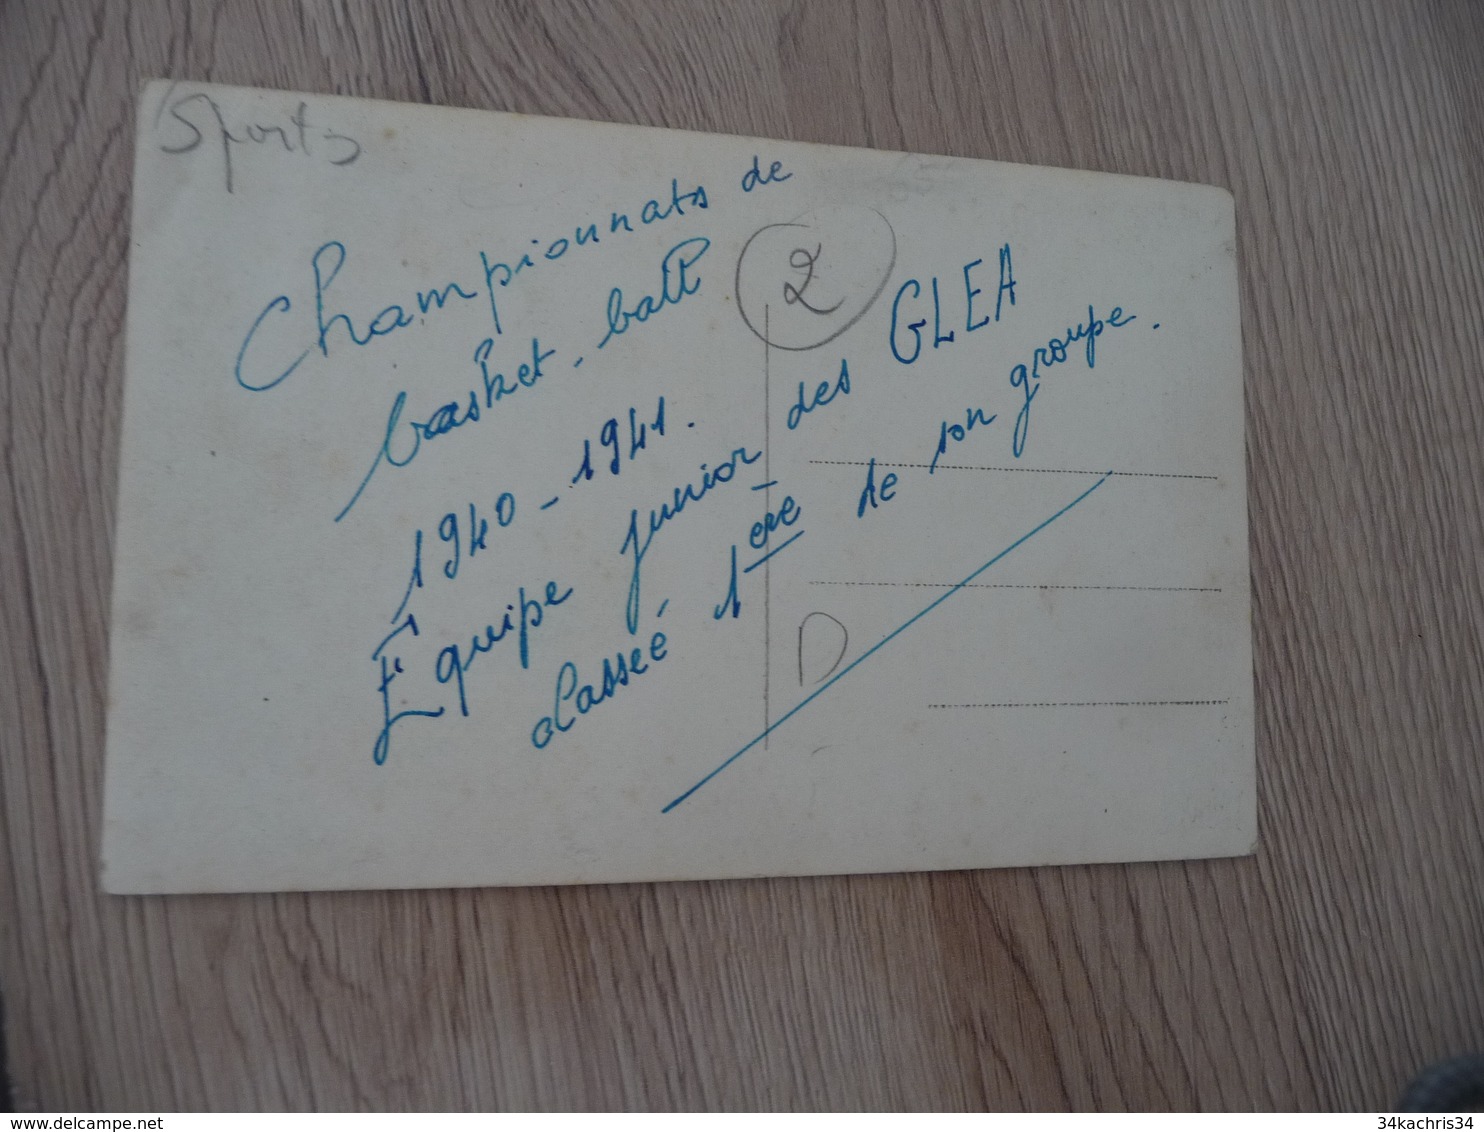 Sports
Championnats de
basket-ball
1940-1941.
Équipe junior des GLEA
classée 1ere de son groupe.
2
D
delcampe.net
34kachris34